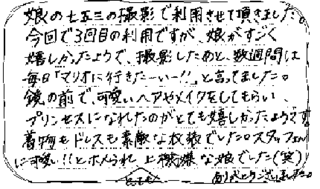 娘の七五三の撮影で利用させて頂きました。
今回で3回目の利用ですが、娘がすごく
嬉しかったようで、撮影したあと、数週間は
毎日「マリオに行きたーいー!!」と言ってました。
鏡の前で、可愛いヘアやメイクをしてもらい、
プリンセスになれたのがとても嬉しかったようです。
着物もドレスも素敵な枚数でした。スタッフさん
に可愛い!!とホメられ、上機嫌な娘でした(笑)
ありがとうございました。